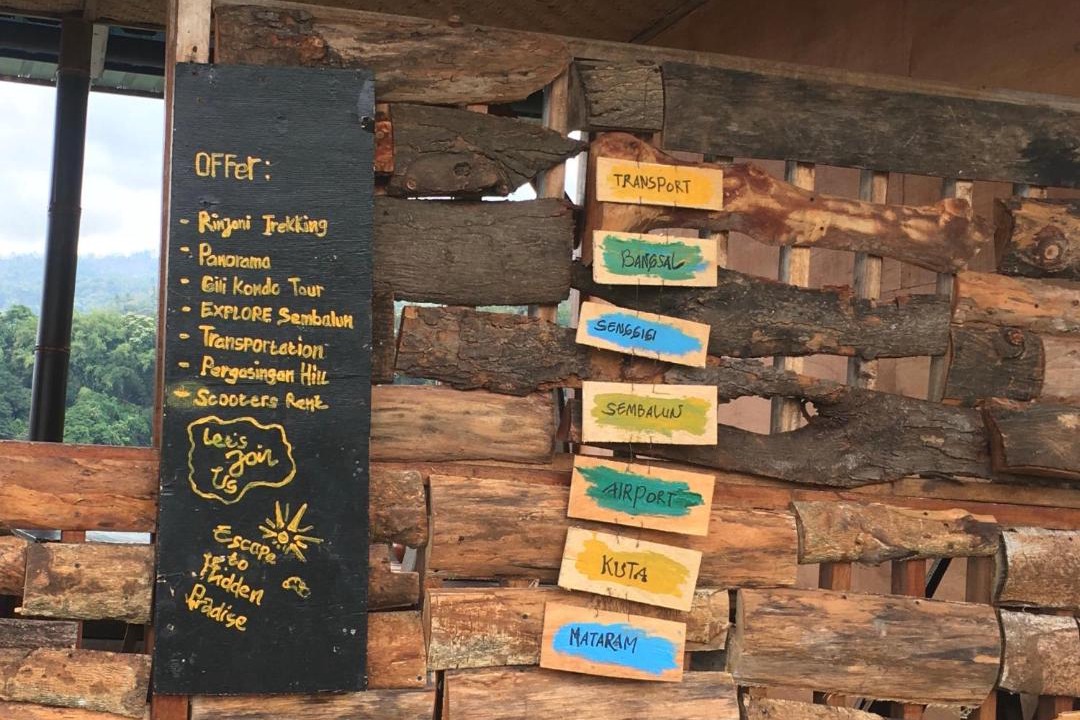 OFFer:
- Rinjani Trekking
- Panorama
- Gili Kondo Tour
- EXPLORE Sembalun
- Transportation
- Pergasingan Hill
- Scooters Rent
Let's
Join
Us
Escape
to
Hidden
Pradise
TRANSPORT
BANGSAL
SENGGIGI
SEMBALUN
AIRPORT
KUTA
MATARAM